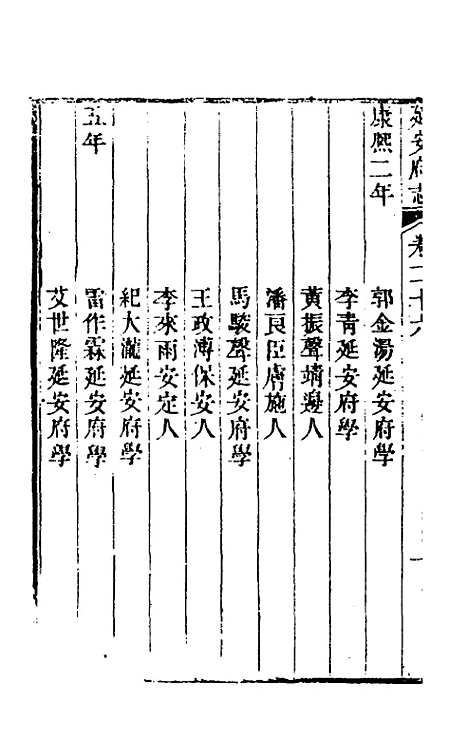 延安府志 卷二十六
康熙二年 郭金湯延安府學
李靑延安府學
黃振聲靖邊人
潘良臣膚施人
馬駿聲延安府學
王政溥保安人
李來雨安定人
紀大瀧延安府學
五年 雷作霖延安府學
艾世隆延安府學